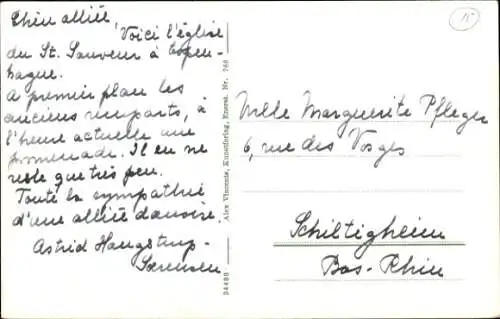 Chère alliée,
Voici l'église
du St. Sauveur à Copen-
hague.
A premier plan les
anciens remparts, à
l'heure actuelle une
promenade. Il en ne
reste que très peu.
Toute la sympathie
d'une alliée danoise.
Astrid Haugstrup-
Sørensen
94480 Alex Vincents, Kunstforlag, Eneret. Nr. 768
15
Mlle Marguerite Pfleger
6, rue des Vosges
Schiltigheim
Bas-Rhin